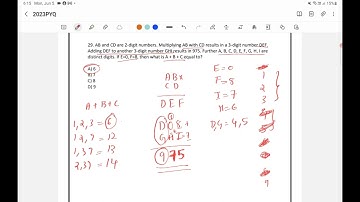 6:15 Mon, Jun 5
2023PYQ
29. AB and CD are 2-digit numbers. Multiplying AB with CD results in a 3-digit number DEF.
Adding DEF to another 3-digit number GHI results in 975. Further A, B, C, D, E, F, G, H, I are
distinct digits. If E=0, F=8, then what is A + B + C equal to?
A) 6
B) 7
C) 8
D) 9
A B ×
C D
D E F
E = 0
F = 8
I = 7
H = 6
D, G = 4, 5
1
2
3
9
A + B + C
1, 2, 3 = 6
1, 2, 7 = 12
1, 3, 7 = 13
2, 3, 7 = 14
D 0 8 +
G H I
9 7 5